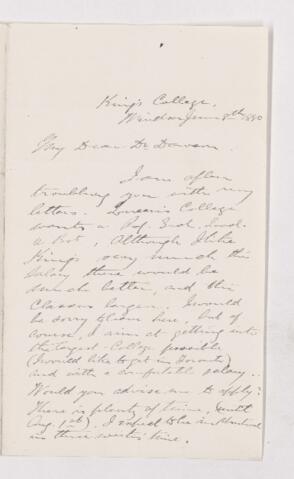 King's College,
Windsor June 8th 1890
My Dear Dr Dawson.
I am often
troubling you with my
letters. Queen's College
wants a Prof. Zool. and
a Bot, Although I like
King's very much the
salary there would be
much better, and the
Classes larger. I would
be sorry to leave here, but of
course, I aim at getting into
the largest College possible
(I would like to get in Toronto)
and with a comfortable salary.
Would you advise me to apply?
There is plenty of time, (until
Aug. 1st). I expect to be in Montreal
in three weeks' time.